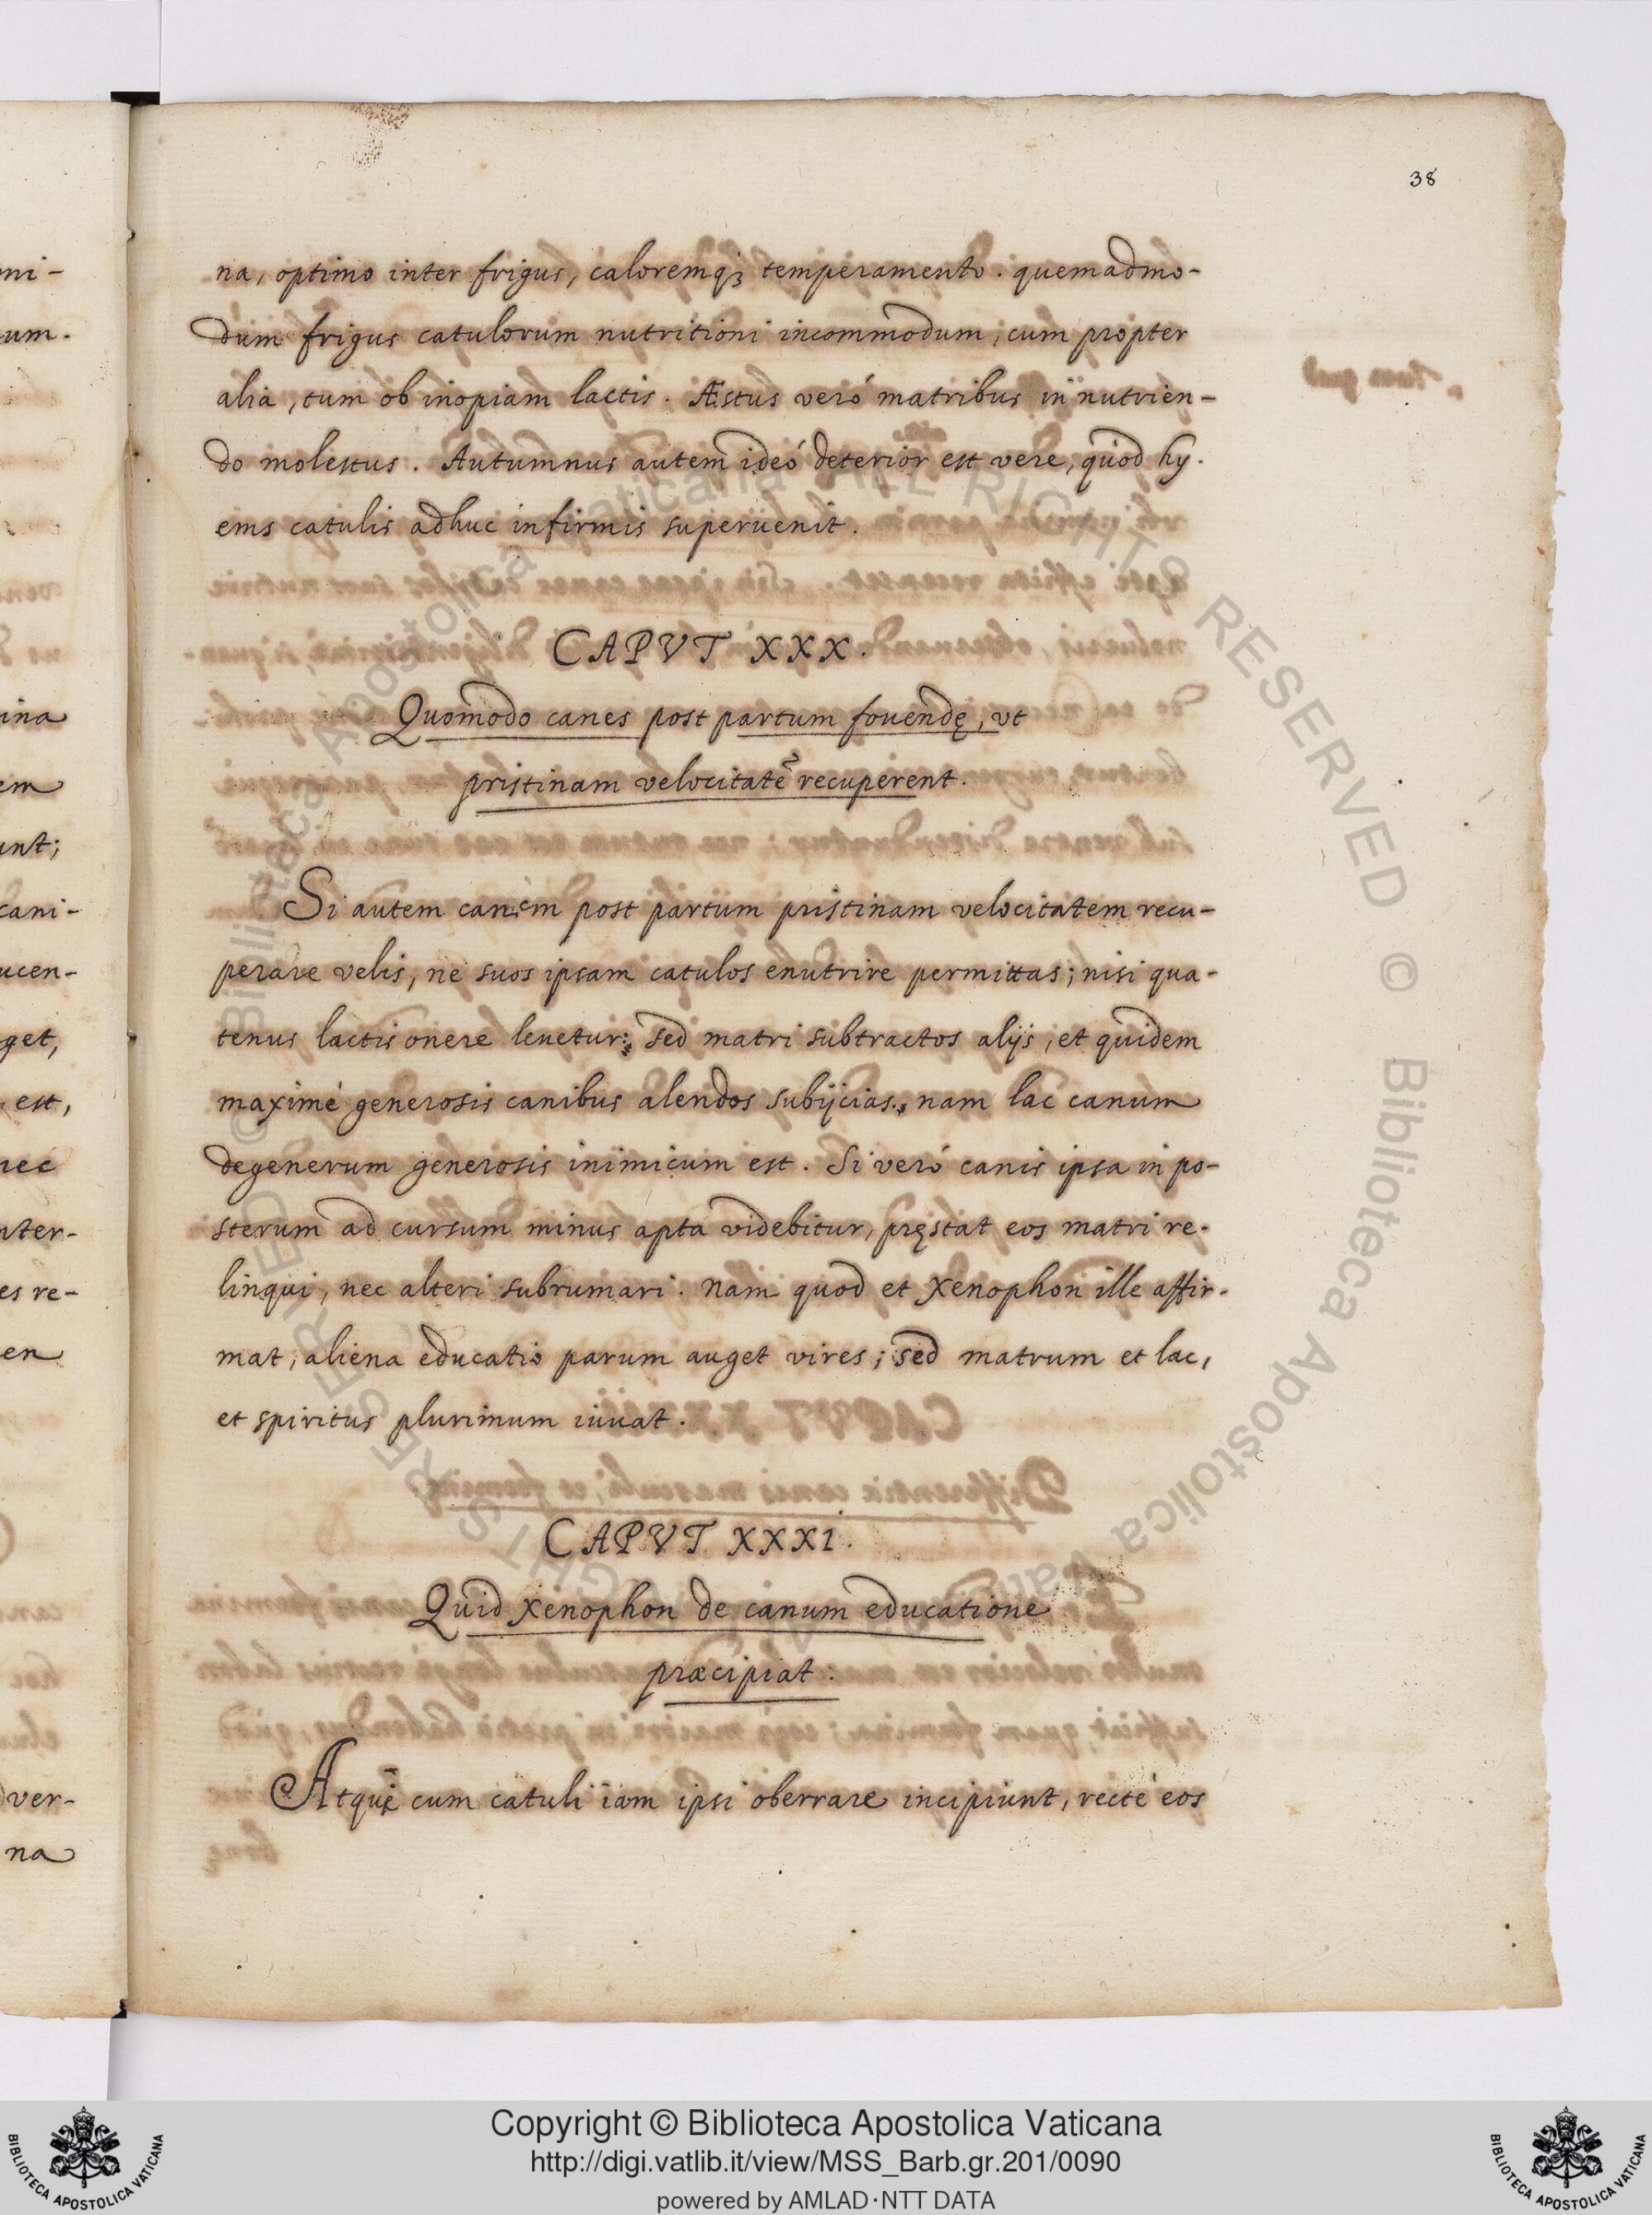 38
na, optimo inter frigus, caloremq; temperamento. quemadmo-
dum frigus catulorum nutritioni incommodum, cum propter
alia, tum ob inopiam lactis. Æstus veró matribus in nutrien-
do molestus. Autumnus autem ideó deterior est vere, quod hy-
ems catulis adhuc infirmis superuenit.
CAPVT XXX.
Quomodo canes post partum fouendę, vt
pristinam velocitatẽ recuperent.
Si autem canem post partum pristinam velocitatem recu-
perare velis, ne suos ipsam catulos enutrire permittas; nisi qua-
tenus lactis onere leuetur: sed matri subtractos alijs, et quidem
maximé generosis canibus alendos subijcias, nam lac canum
degenerum generosis inimicum est. Si veró canis ipsa in po-
sterum ad cursum minus apta videbitur, pręstat eos matri re-
linqui, nec alteri subrumari. nam quod et Xenophon ille affir-
mat, aliena educatio parum auget vires; sed matrum et lac,
et spiritus plurimum iuuat.
CAPVT XXXI.
Quid Xenophon de canum educatione
præcipiat.
Atque cum catuli iam ipsi oberrare incipiunt, recté eos
ni-
um.
ina
em
unt;
cani-
ucen-
get,
est,
nec
nter-
es re-
en
ver-
na
© Biblioteca Apostolica Vaticana ALL RIGHTS RESERVED © Biblioteca Apostolica Vaticana ALL RIGHTS RESERVED
Copyright © Biblioteca Apostolica Vaticana
http://digi.vatlib.it/view/MSS_Barb.gr.201/0090
powered by AMLAD·NTT DATA
BIBLIOTECA APOSTOLICA VATICANA
BIBLIOTECA APOSTOLICA VATICANA